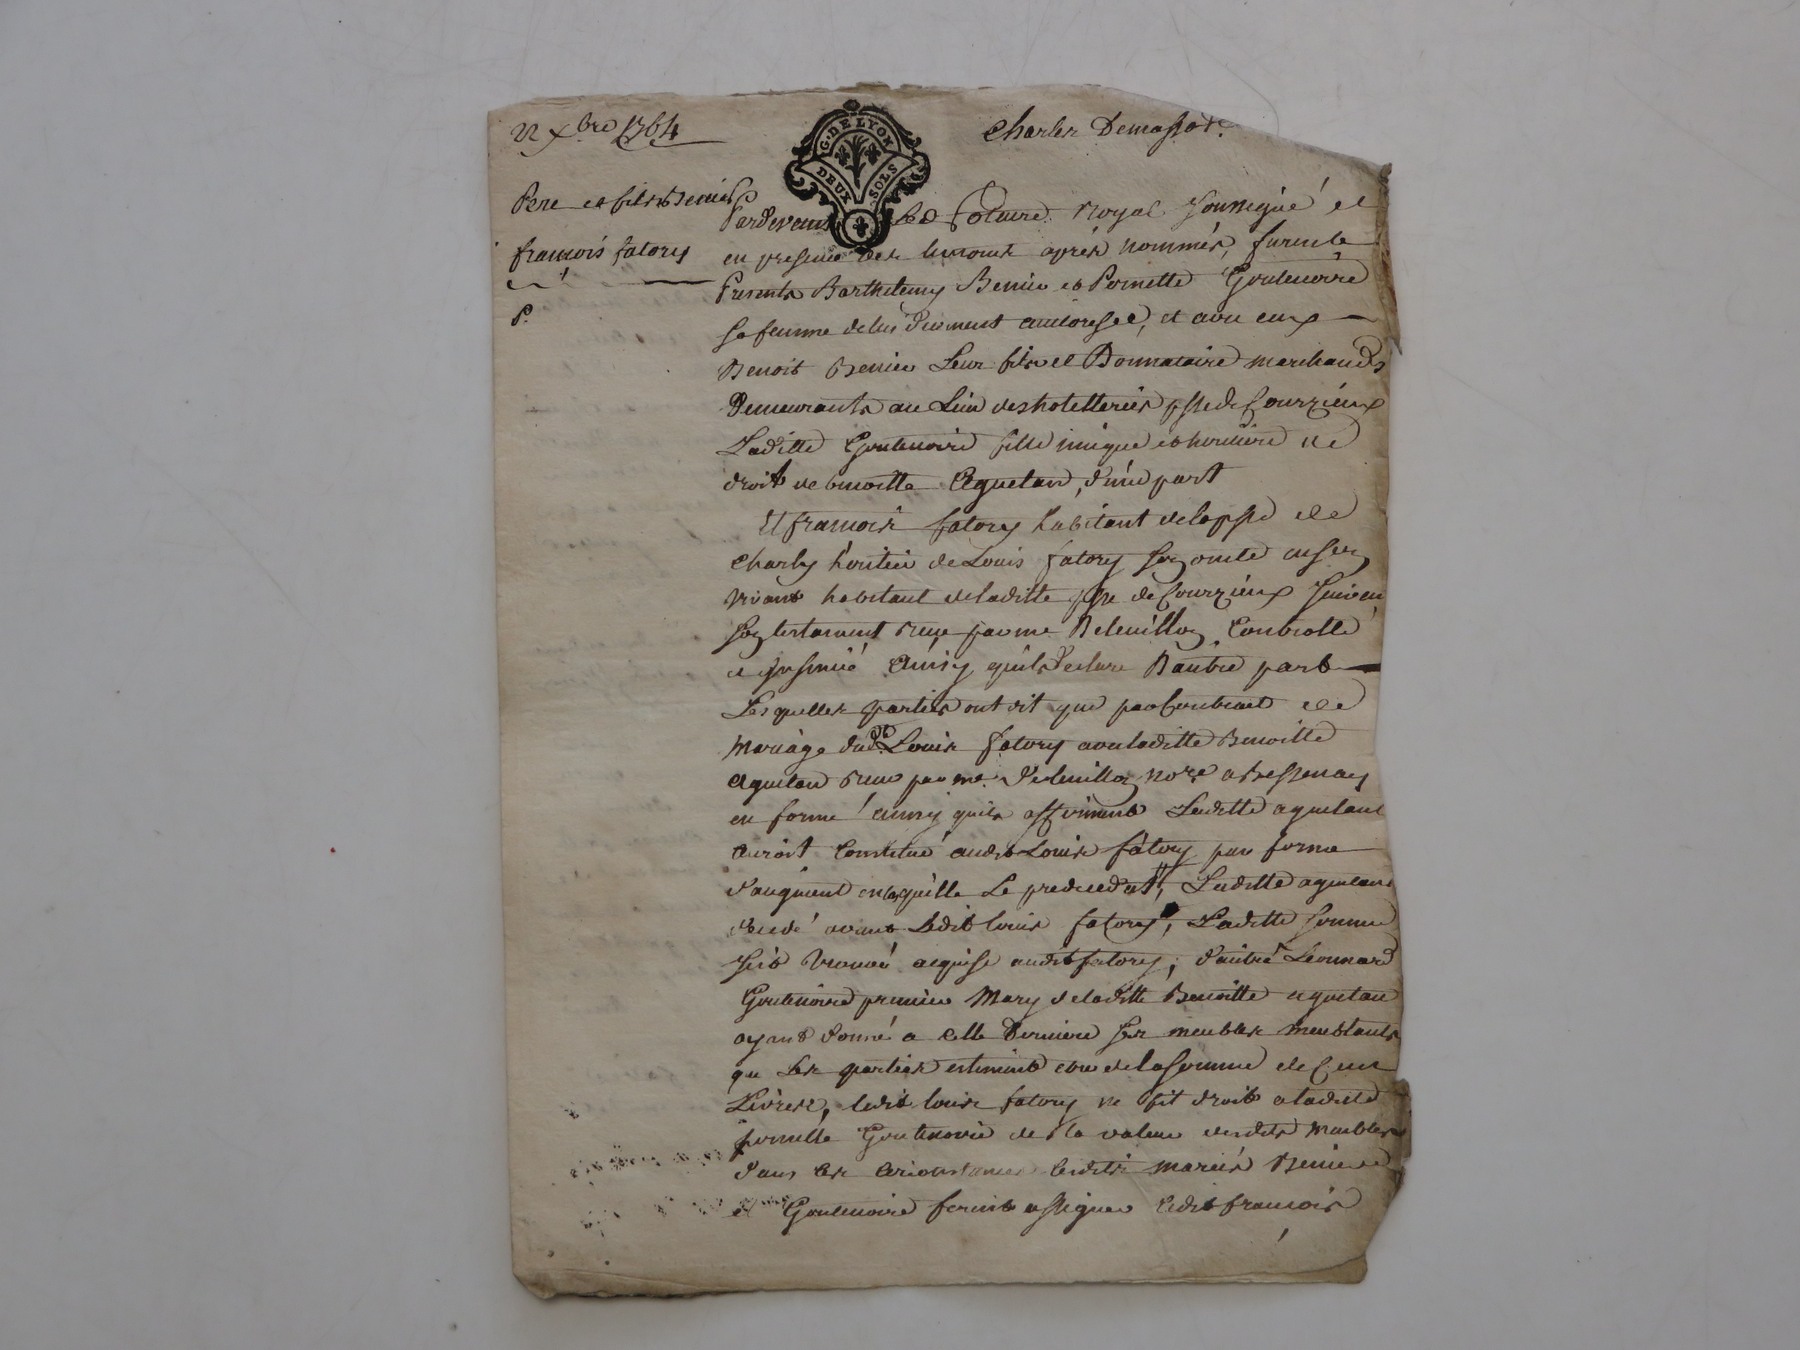 22 xbre 1764
Charles Demassod.
G. DE LYON
DEUX SOLS
Pere et fils Benier
françois fatory
P.
Pardevant Le Notaire Royal soussigné et
en presence des temoins après nommés, furent
Presents Barthelemy Benier et Pernette Goutenoire
sa femme de lui duement authorisée, et avec eux
Benoit Benier Leur fils et Donnataire marchands
Demeurants au Lieu des hotelleries psse de Courzieux
Laditte Goutenoire fille unique et heritiere de
droit de benoitte Aguetan, d'une part
Et francois fatory habitant de la psse de
Charly héritier de Louis fatory son oncle en son
vivant habitant de laditte psse de Courzieux suivant
son testament reçu par me Controllé
et insinué Ainsy qu'il Declare D'autre part
Lesquelles parties ont dit que par Contract de
Mariage dud. Louis fatory avec laditte Benoitte
Aguetan reçu par me. nore a Bessenay
en forme ainsy quils affirment Laditte aguetant
auroit Constitué audit Louis fatory par forme
d'augment Le predecedat, Laditte aguetant
decedé avant Ledit louis fatory, Laditte somme
s'est trouvé acquise audit fatory; d'autre Leonnard
Goutenoire premier Mary de laditte Benoitte aguetan
ayant donné a cette Derniere ses meubles meublants
que Les parties estiment etre de la somme de Cent
Livres, ledit louis fatory ne fit droit a laditte
pernette Goutenoire de la valeur desdits Meubles
Dans Ces Circonstances lesdits mariés Benier
et Goutenoire firent assigner Ledit francois